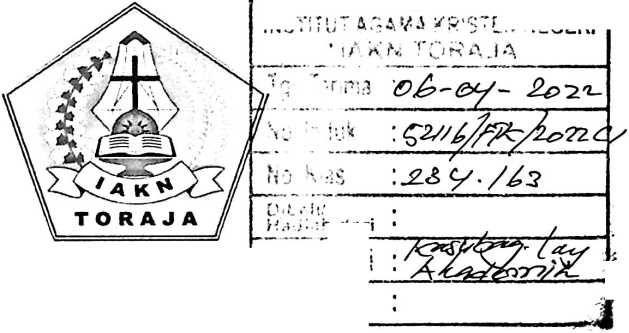 IAKN
TORAJA
INSTITUT AGAMA KRISTEN NEGERI
IAKN TORAJA
Tgl Terima 06-04-2022
No Induk : 52116/FK/2022
No Klas : 284.163
:
: Kasubag. Lay
Akademik
: